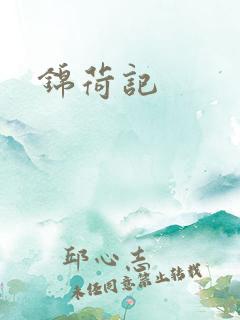 錦荷記
邱心志
未经同意禁止转载